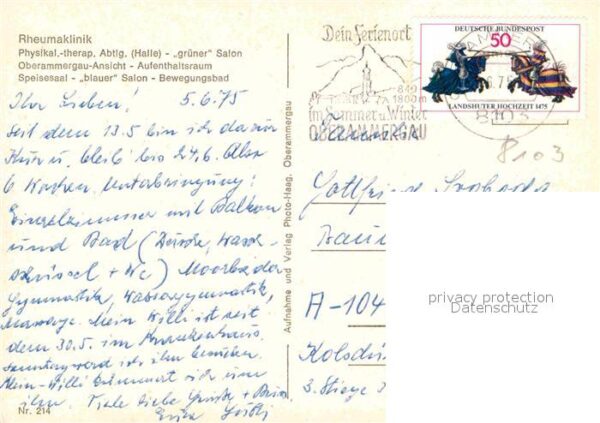 Rheumaklinik
Physikal.-therap. Abtlg. (Halle) - „grüner" Salon
Oberammergau-Ansicht - Aufenthaltsraum
Speisesaal - „blauer" Salon - Bewegungsbad
Ihr Lieben! 5.6.75
seit dem 13.5 bin ich da zur
Kur u. bleib bis 24.6. Also
6 Wochen. Unterbringung:
Einzelzimmer mit Balkon
und Bad (Dusche, Wasch-
schüssel + Wc) Moorbäder
Gymnastik, Wassergymnastik,
Massage. Mein Willi ist seit
dem 30.5. im Krankenhaus.
ich ihn besuchen.
Klein-Willi kümmert sich um
ihn. Viele liebe Grüße +
Erika
Nr. 214
Aufnahme und Verlag Photo-Haag, Oberammergau
Dein Ferienort
840
1800m
im Sommer u. Winter
OBERAMMERGAU
DEUTSCHE BUNDESPOST
50
LANDSHUTER HOCHZEIT 1475
8103
8103
A-104
3. Stiege
privacy protection
Datenschutz